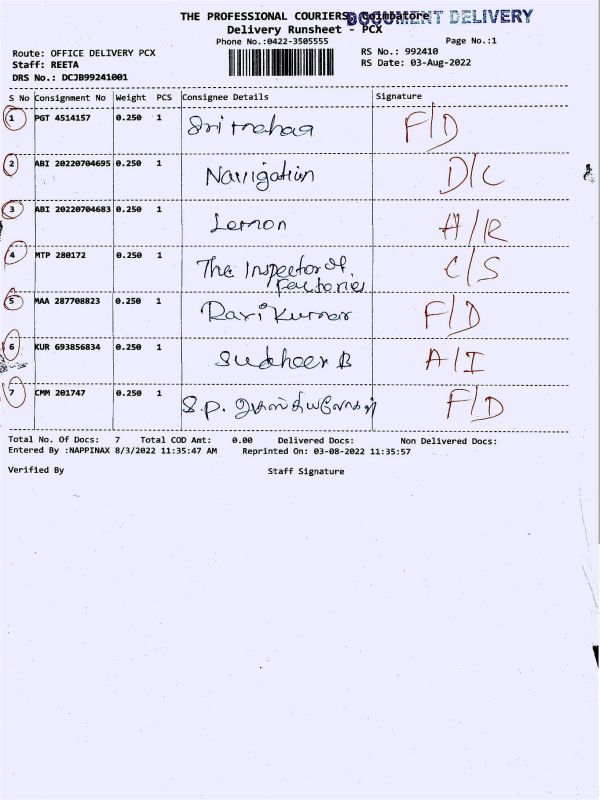 THE PROFESSIONAL COURIERS, Coimbatore
DOCUMENT DELIVERY
Delivery Runsheet - PCX
Phone No.:0422-3505555 Page No.:1
Route: OFFICE DELIVERY PCX RS No.: 992410
Staff: REETA RS Date: 03-Aug-2022
DRS No.: DCJB99241001
S No Consignment No Weight PCS Consignee Details Signature
1 PGT 4514157 0.250 1 Sri F/D
2 ABI 20220704695 0.250 1 Navigation D/C
3 ABI 20220704683 0.250 1 Lemon A/R
4 MTP 280172 0.250 1 The Inspector of C/S
Factories
5 MAA 287708823 0.250 1 Ravi Kumar F/D
6 KUR 693856834 0.250 1 Sudheer B A/I
7 CMM 201747 0.250 1 S.P. F/D
Total No. Of Docs: 7 Total COD Amt: 0.00 Delivered Docs: Non Delivered Docs:
Entered By :NAPPINAX 8/3/2022 11:35:47 AM Reprinted On: 03-08-2022 11:35:57
Verified By Staff Signature